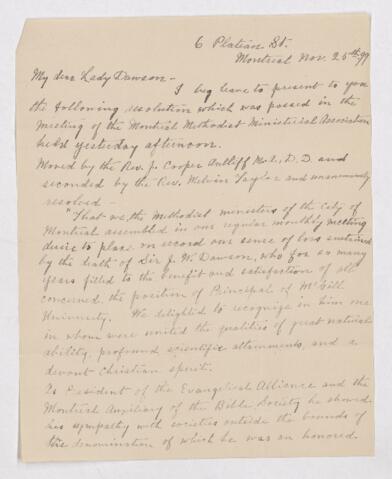 6 Plateau St.
Montreal Nov. 25th 99
My dear Lady Dawson -
I beg leave to present to you
the following resolution which was passed in the
meeting of the Montreal Methodist Ministerial Association
held yesterday afternoon.
Moved by the Rev. J. Cooper Antliff M.A., D.D. and
seconded by the Rev. Melvin Taylor and unanimously
resolved -
"That we, the Methodist ministers of the City of
Montreal assembled in our regular monthly meeting
desire to place on record our sense of loss sustained
by the death of Sir J. W. Dawson, who for so many
years filled to the benefit and satisfaction of all
concerned the position of Principal of McGill
University. We delighted to recognize in him one
in whom were united the qualities of great natural
ability, profound scientific attainments, and a
devout Christian spirit.
As President of the Evangelical Alliance and the
Montreal Auxiliary of the Bible Society he showed
his sympathy with societies outside the bounds of
the denomination of which he was an honored